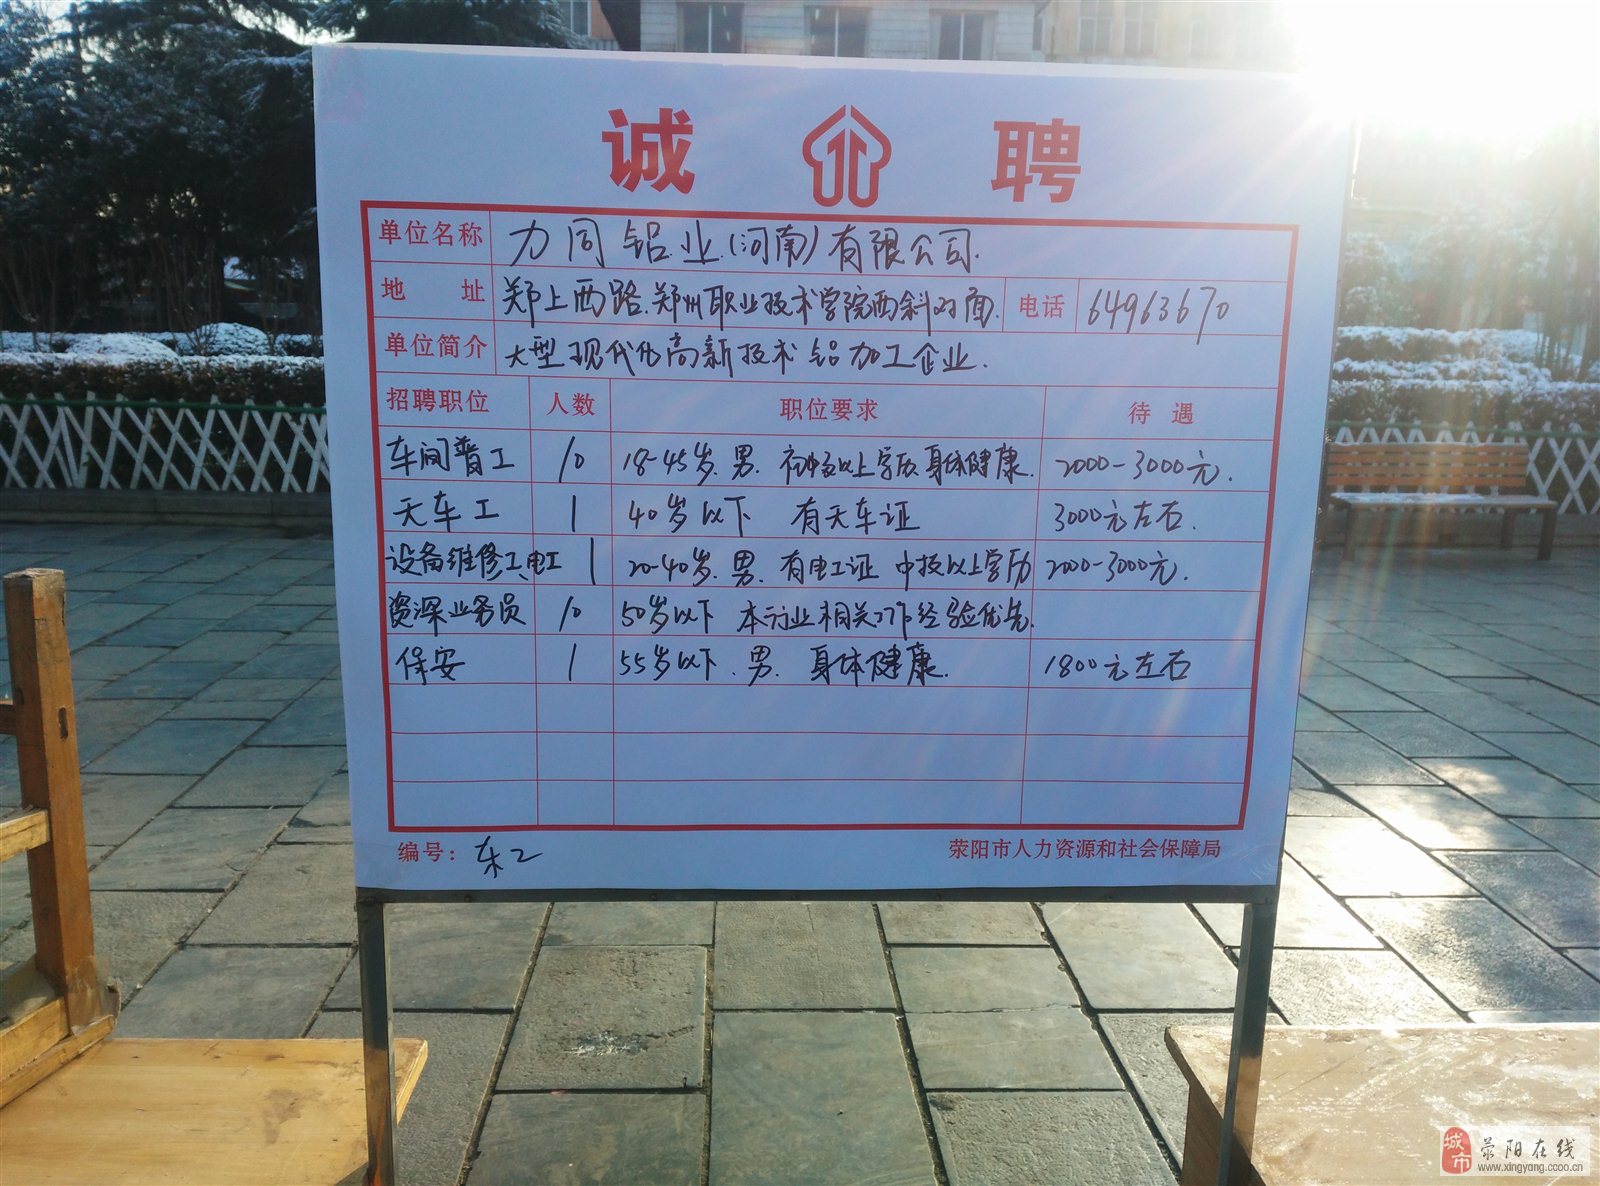 诚 聘
单位名称 力同铝业(河南)有限公司.
地 址 郑上西路.郑州职业技术学院西斜对面. 电话 64963670
单位简介 大型现代化高新技术铝加工企业.
招聘职位 人数 职位要求 待 遇
车间普工 10 18-45岁.男.初中及以上学历.身体健康. 2000-3000元.
天车工 1 40岁以下 有天车证 3000元左右.
设备维修工、电工 1 20-40岁.男.有电工证 中技以上学历 2000-3000元.
资深业务员 10 50岁以下 本行业相关工作经验优先.
保安 1 55岁以下.男.身体健康. 1800元左右
编号: 东2 荥阳市人力资源和社会保障局
城市 荥阳在线
www.xingyang.ccoo.cn